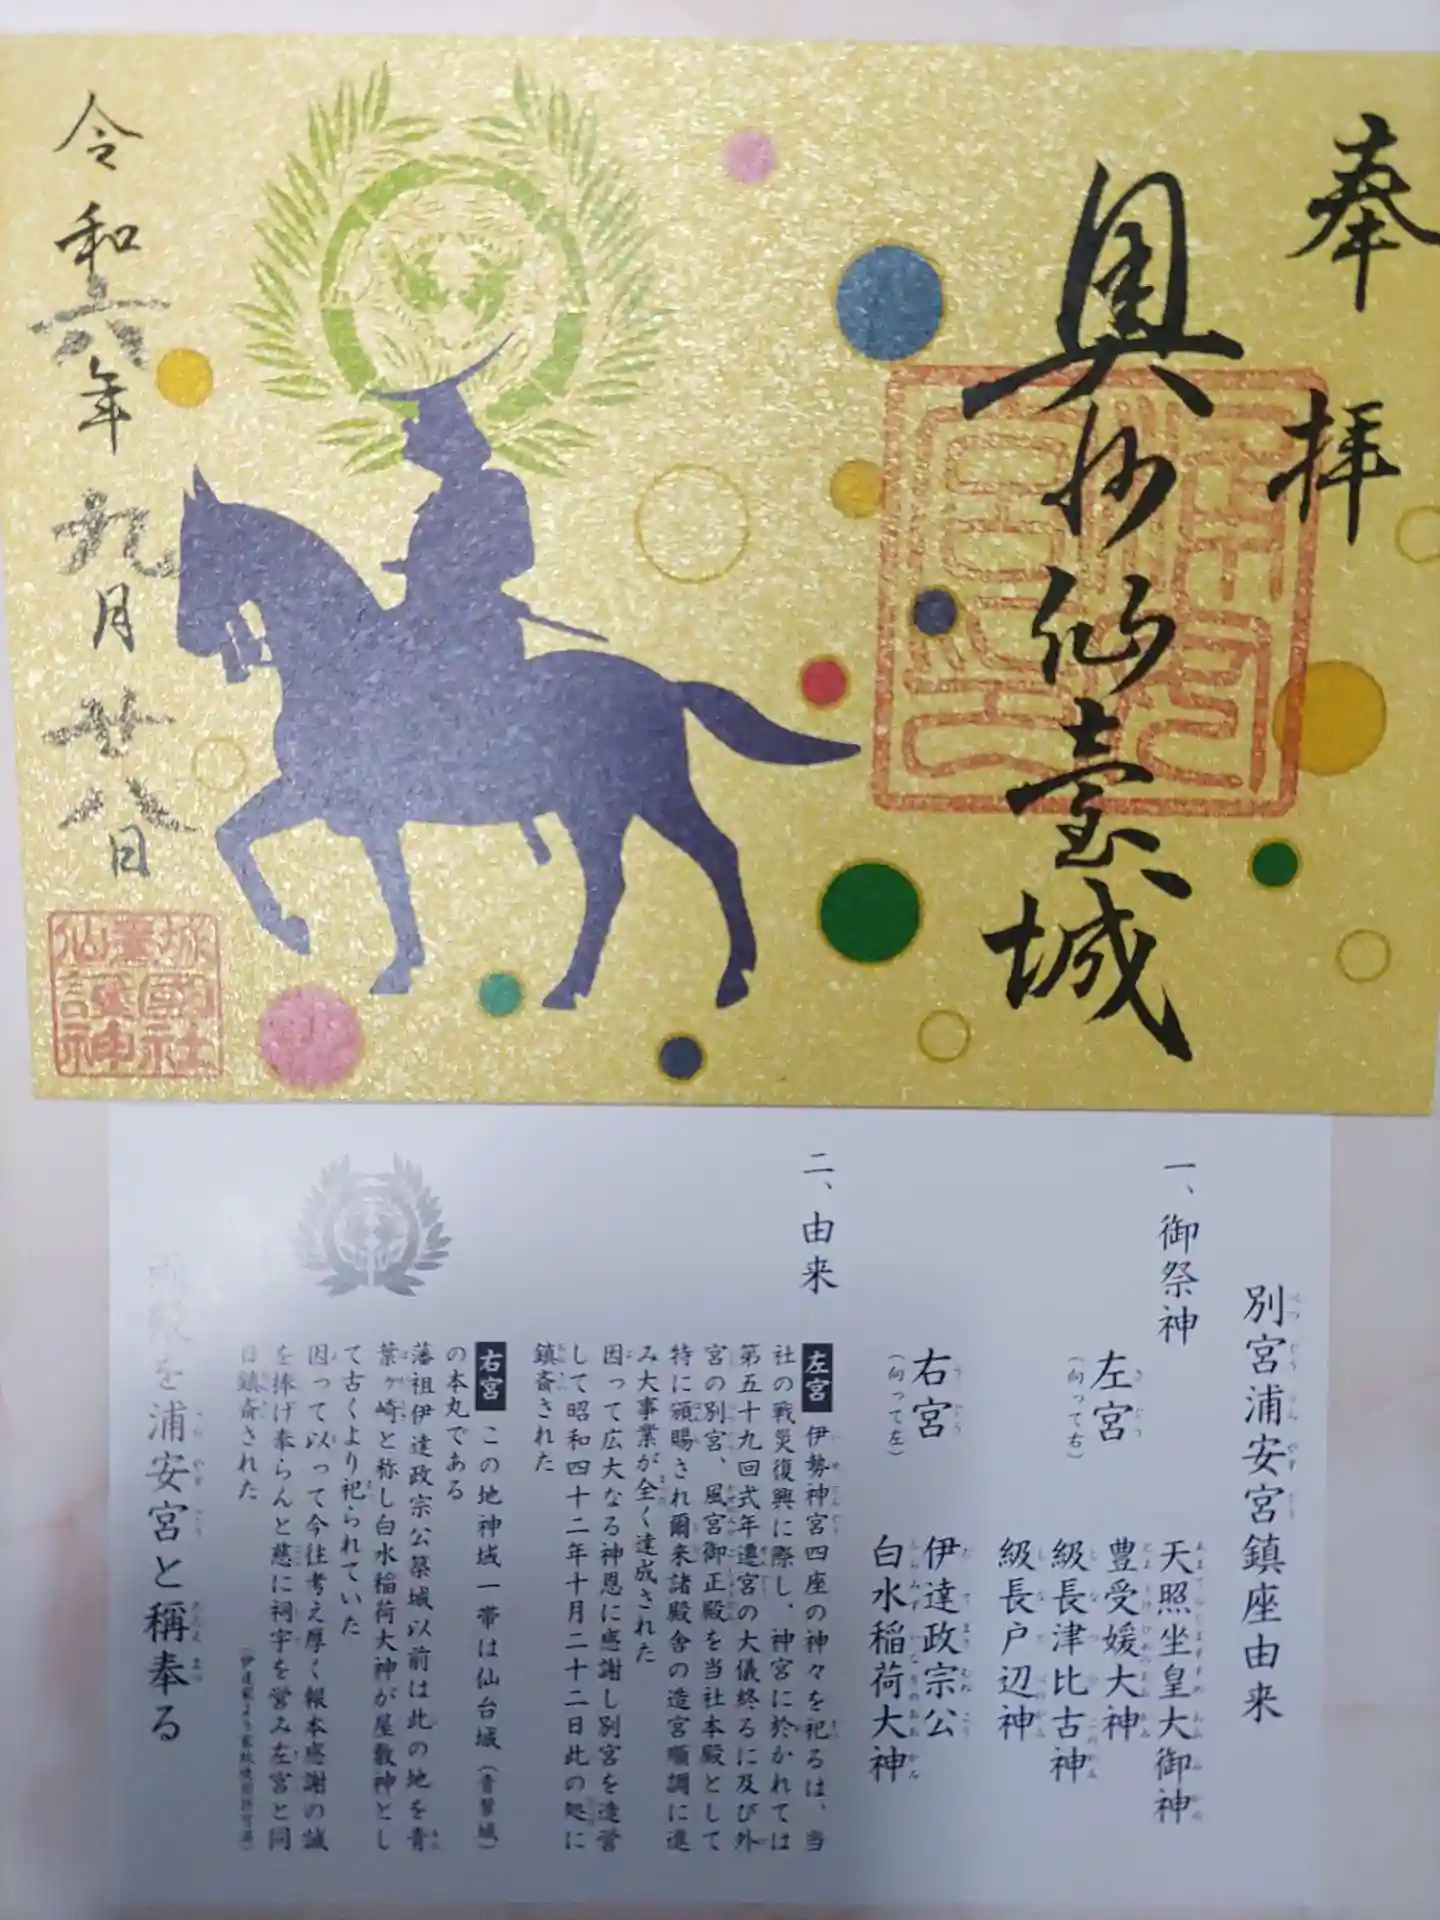 奉拝
奥州仙臺城
令和六年九月廿八日
仙臺城
護國
神社
別宮浦安宮鎮座由来
一、御祭神
左宮
(向って右)
天照坐皇大御神
豊受媛大神
級長津比古神
級長戸辺神
右宮
(向って左)
伊達政宗公
白水稲荷大神
二、由来
左宮 伊勢神宮四座の神々を祀るは、当
社の戦災復興に際し、神宮に於かれては
第五十九回式年遷宮の大儀終るに及び外
宮の別宮、風宮御正殿を当社本殿として
特に頒賜され爾来諸殿舎の造宮順調に進
み大事業が全く達成された
因って広大なる神恩に感謝し別宮を造営
して昭和四十二年十月二十二日此の処に
鎮斎された
右宮 この地神域一帯は仙台城(青葉城)
の本丸である
藩祖伊達政宗公築城以前は此の地を青
葉ヶ崎と称し白水稲荷大神が屋敷神とし
て古くより祀られていた
因って以って今往考え厚く報本感謝の誠
を捧げ奉らんと慈に祠宇を営み左宮と同
日鎮斎された
(伊達家より家紋使用許可済)
両殿を浦安宮と稱え奉る